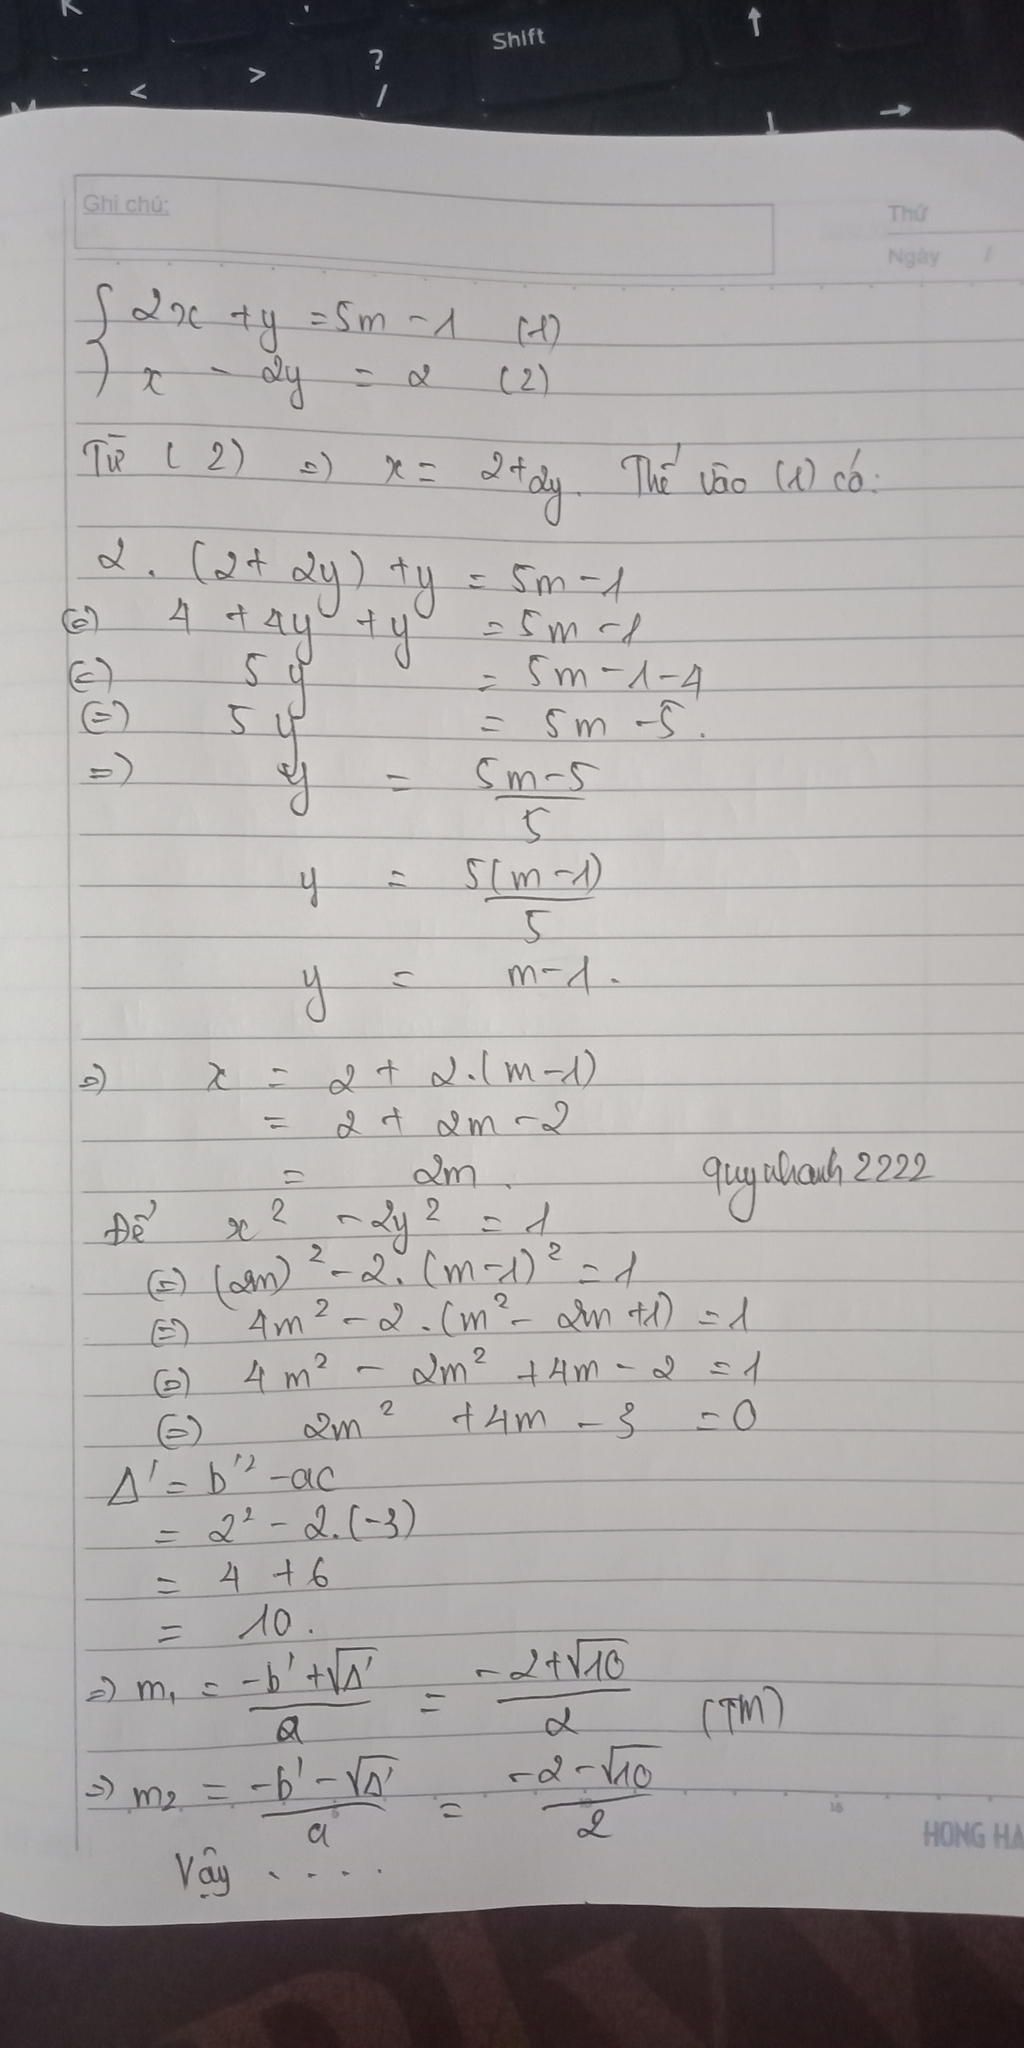 K
Shift
?
< > /
M
Ghi chú:
Thứ
Ngày /
2x + y = 5m - 1 (1)
x - 2y = 2 (2)
Từ (2) => x = 2+2y. Thế vào (1) có:
2. (2+ 2y) + y = 5m - 1
(=) 4 + 4y + y = 5m - 1
(=) 5y = 5m - 1 - 4
(=) 5y = 5m - 5.
=) y = 5m-5 / 5
y = 5(m-1) / 5
y = m-1.
=) x = 2 + 2.(m-1)
= 2 + 2m - 2
= 2m. quynhanh2222
Để x² - 2y² = 1
(=) (2m)² - 2.(m-1)² = 1
(=) 4m² - 2.(m² - 2m + 1) = 1
(=) 4m² - 2m² + 4m - 2 = 1
(=) 2m² + 4m - 3 = 0
Δ' = b'² - ac
= 2² - 2.(-3)
= 4 + 6
= 10.
=) m₁ = -b' + √Δ' / a = -2+√10 / 2 (TM)
=) m₂ = -b' - √Δ' / a = -2-√10 / 2
15
HONG HA
Vậy ....